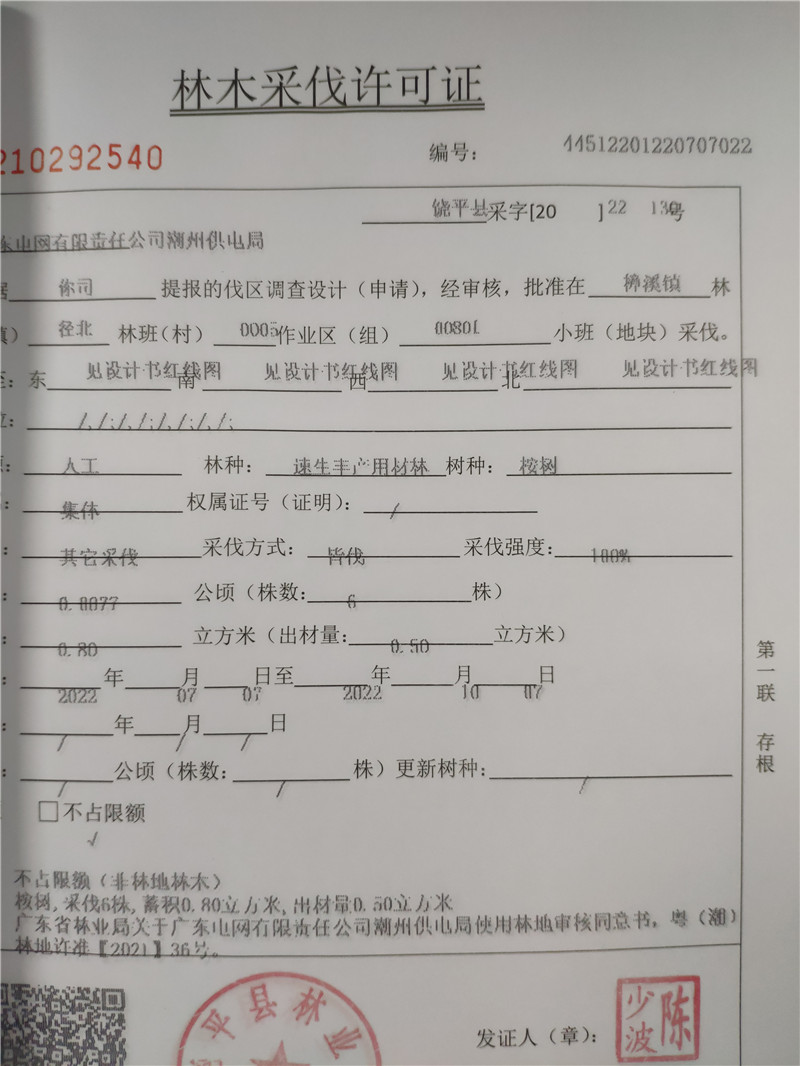 林木采伐许可证
210292540 编号： 44512201220707022
饶平县采字[20 ]22 130号
东电网有限责任公司潮州供电局
据 你司 提报的伐区调查设计（申请），经审核，批准在 樟溪镇 林
镇） 径北 林班（村） 0005作业区（组） 00801 小班（地块）采伐。
至：东 见设计书红线图 南 见设计书红线图 西 见设计书红线图 北 见设计书红线图
位： /,/;/,/;/,/;/,/;
源： 人工 林种： 速生丰产用材林 树种： 桉树
： 集体 权属证号（证明）： /
： 其它采伐 采伐方式： 皆伐 采伐强度： 100%
： 0.0077 公顷（株数： 6 株）
： 0.80 立方米（出材量： 0.50 立方米）
： 2022 年 07 月 07 日至 2022 年 10 月 07 日
： / 年 / 月 / 日
： / 公顷（株数： / 株）更新树种： /
□不占限额
√
不占限额（非林地林木）
桉树，采伐6株，蓄积0.80立方米，出材量0.50立方米
广东省林业局关于广东电网有限责任公司潮州供电局使用林地审核同意书，粤（潮）
林地许准【2021】36号。
第一联 存根
饶平县林业
发证人（章）：
陈少波